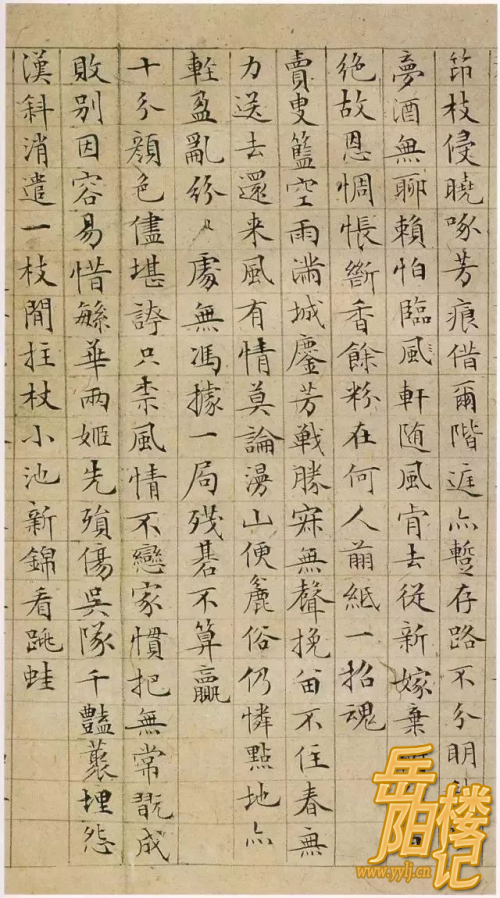 笻枝侵曉啄芳痕借爾階遲亦暫存路不分明
夢酒無聊賴怕臨風軒隨風肯去從新嫁棄
絶故恩惆悵斷香餘粉在何人剪紙一招魂
賣叟籃空雨滿城鏖芳戰勝寂無聲挽留不住春無
力送去還来風有情莫論漫山便麄俗仍憐點地亦
輕盈亂紛〻處無馮據一局殘碁不算贏
十分顏色儘堪誇只柰風情不戀家慣把無常翫成
敗別因容易惜緐華兩姬先殞傷吳隊千豔叢埋怨
漢斜消遣一枝閒拄杖小池新錦看跳蛙
岳阳楼记
www.yylj.cn